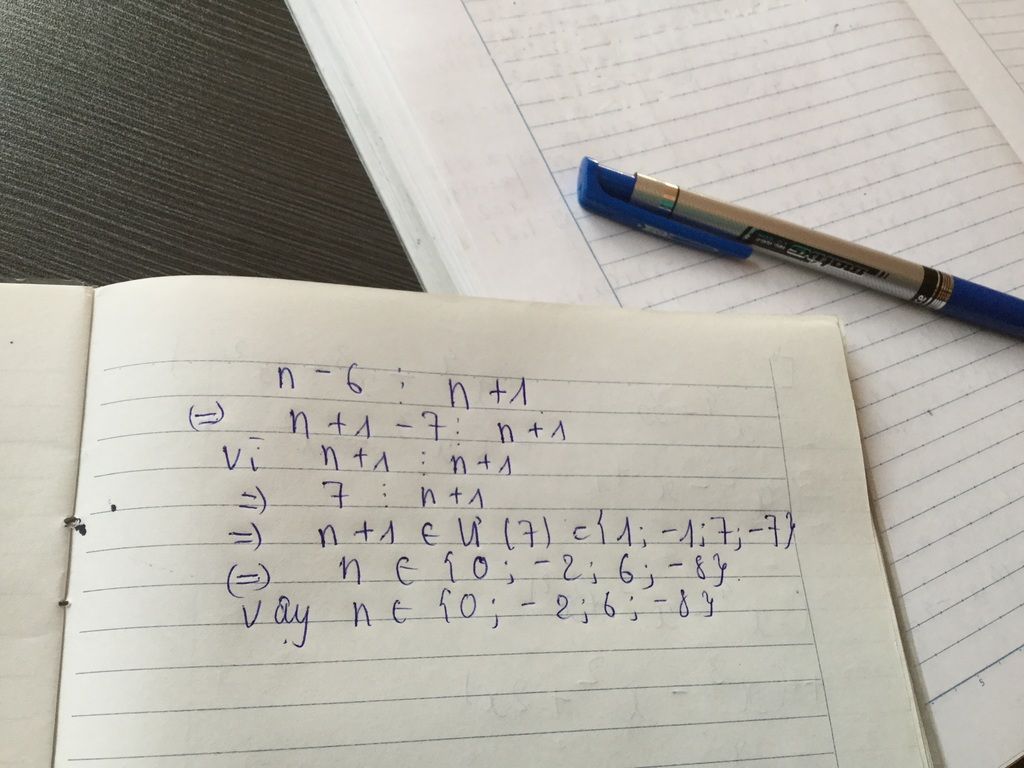 n - 6 ⋮ n + 1
(=) n + 1 - 7 ⋮ n + 1
Vì n + 1 ⋮ n + 1
=) 7 ⋮ n + 1
=) n + 1 ∈ Ư (7) = {1; -1; 7; -7}
(=) n ∈ {0; -2; 6; -8}
Vậy n ∈ {0; -2; 6; -8}